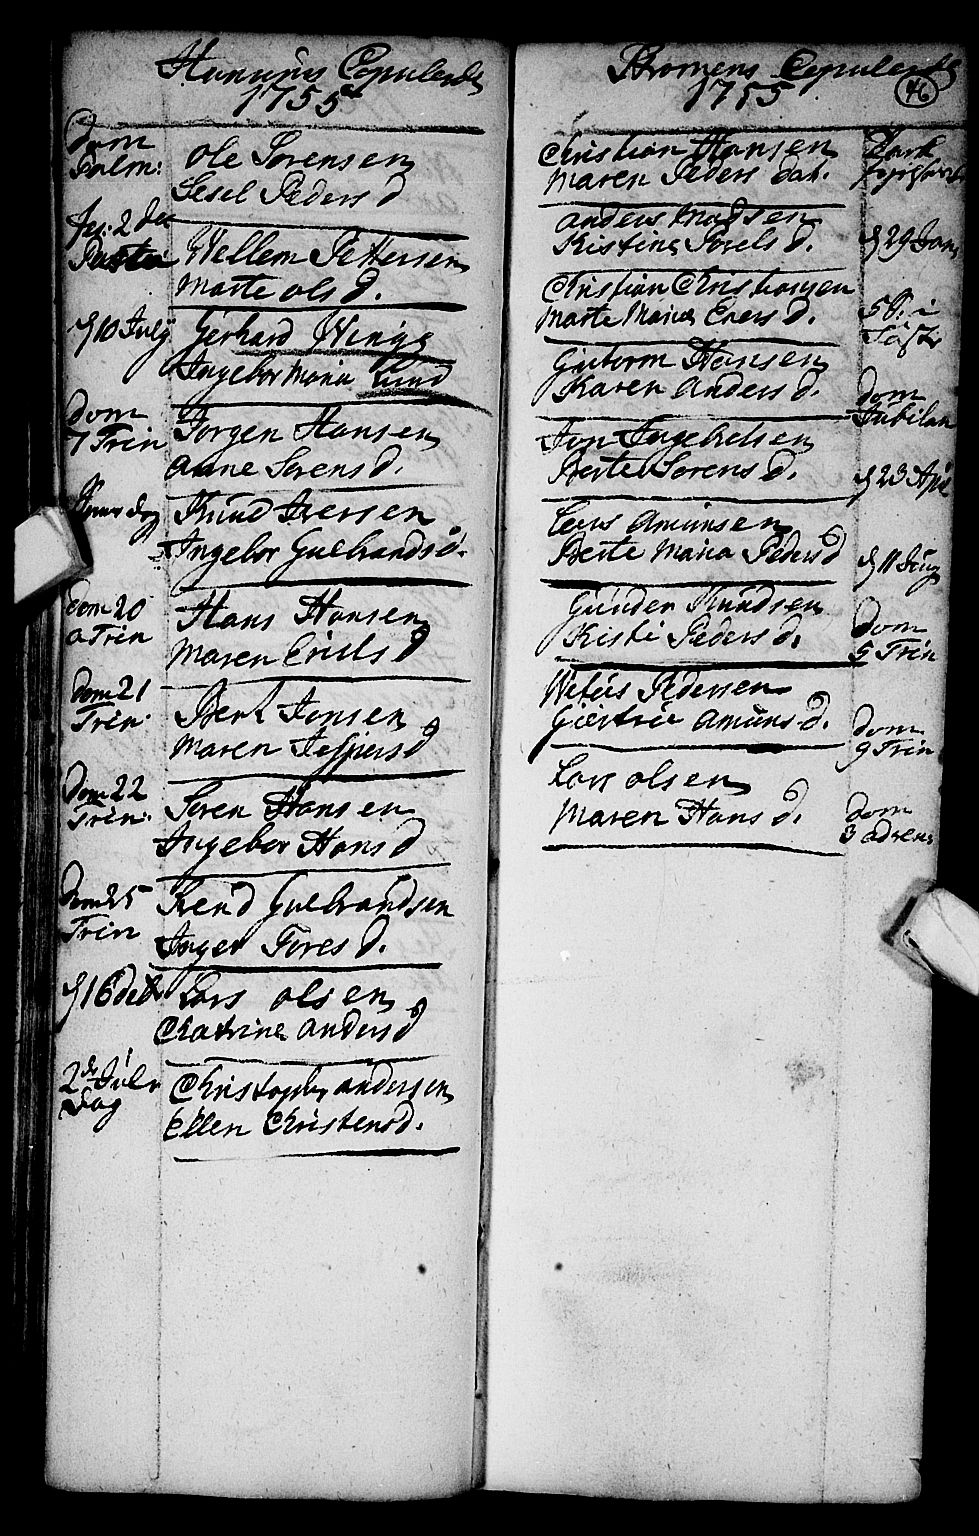 Copulerde
1755
dom
Palm:
Ole Sørensen
Sesel Peders d
Fer: 2 den
Pasche
Wellem Pettersen
Marte Ols d.
d 10 July
Gerhard Wingg
Ingebor Maria Lund
dom
7 Trin
Jørgen Hansen
Anne Sørens d.
Knud Iversen
Ingebor Gulbrands d.
dom 20
a Trin
Hans Hansen
Maren Eriels d
dom 21
Trin.
Bent Jonsen
Maren Jespers d
dom 22
Trin:
Søren Hansen
Ingebor Hans d
dom 25
Trin
Knud Gulbrandsen
Inger Tores d.
d 16 decbr
Lars Olsen
Chatrine Anders d
2den Jule
dag
Christopher Andersen
Ellen Christens d.
Bromens Copulerde
1755
46
Christian Hansen
Maren Peders dat.
Anders Madsen
Kistine Poels d.
d 29 Jan
Christian Christiansen
Marte Maria Evers d.
5 P: i
Faste
Guttorm Hansen
Karen Anders d.
dom
Jubilate
Jon Ingebretsen
Berte Sørens d.
d 23 Apr
Lars Amunsen
Berte Maria Peders d
d 11 Juny
Gunder Knudsen
Kisti Peders d.
dom
5 Trin
Wetles Pedersen
Giertrue Amuns d.
dom
9 Trin
Lars Olsen
Maren Hans d.
dom
3 Advent